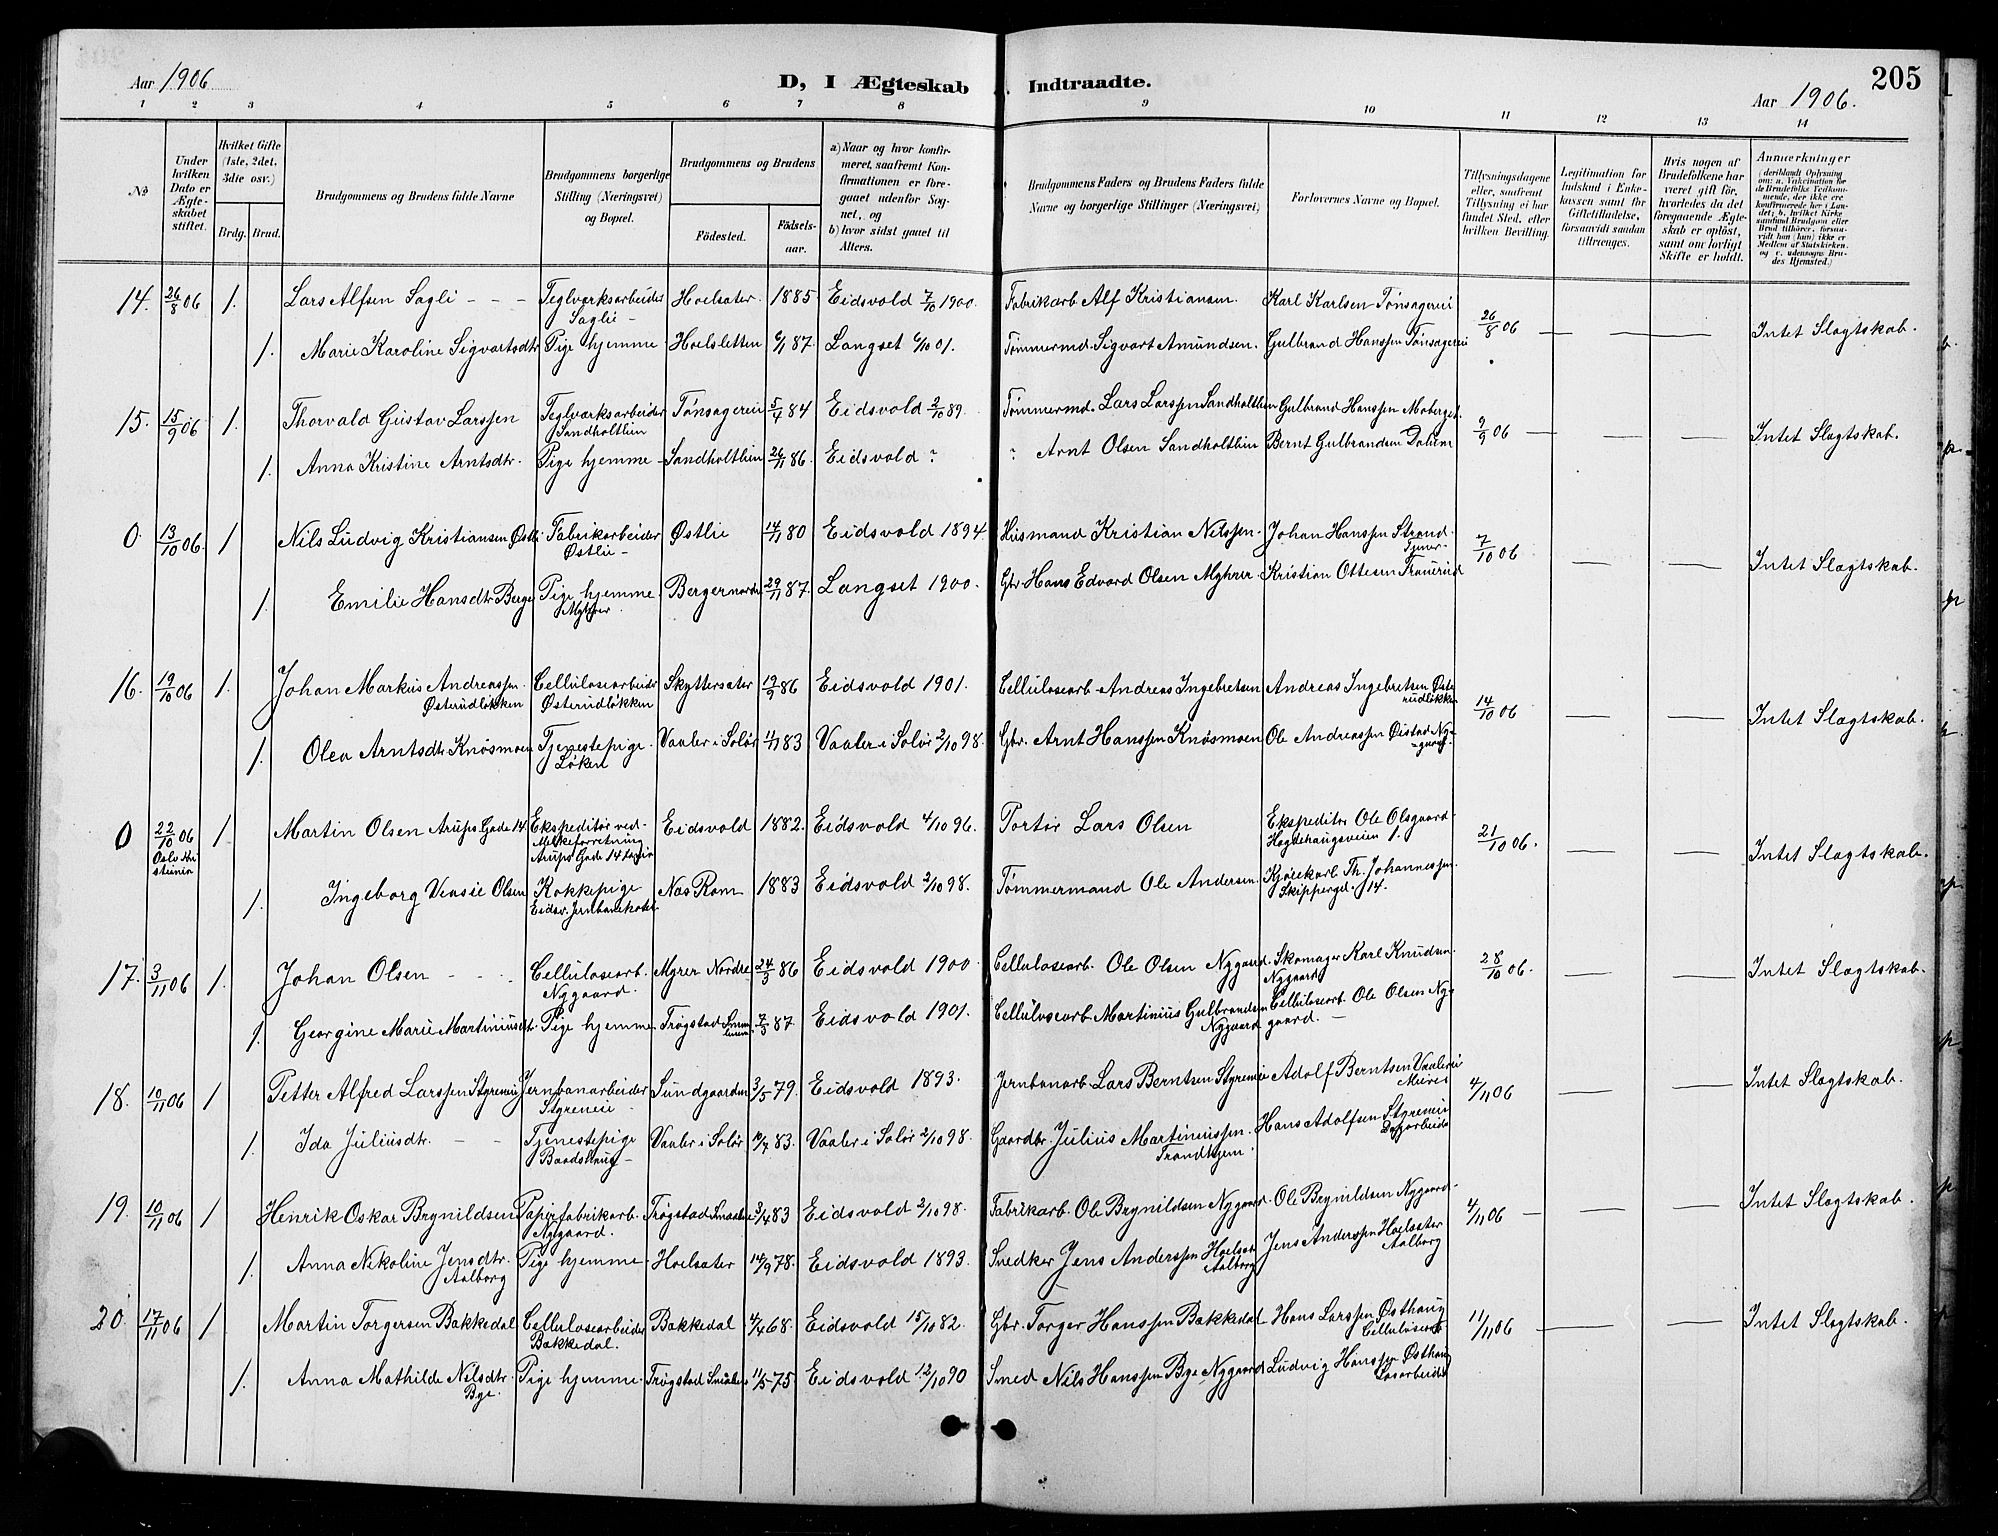 205
Aar 1906
D, I Ægteskab Indtraadte.
Aar 1906.
1 2 3 4 5 6 7 8 9 10 11 12 13 14
№
Under hvilken Dato er Ægteskabet stiftet.
Hvilket Gifte (1ste, 2det, 3die osv.)
Brdg. Brud.
Brudgommens og Brudens fulde Navne
Brudgommens borgerlige Stilling (Næringsvei) og Bopæl.
Brudgommens og Brudens
Fødested.
Fødselsaar.
a) Naar og hvor konfirmeret, saafremt Konfirmationen er foregaaet udenfor Sognet, og
b) hvor sidst gaaet til Alters.
Brudgommens Faders og Brudens Faders fulde Navne og borgerlige Stillinger (Næringsvei)
Forlovernes Navne og Bopæl.
Tillysningsdagene eller, saafremt Tillysning ei har fundet Sted, efter hvilken Bevilling.
Legitimation for Indskud i Enkekassen samt for Giftetilladelse, forsaavidt saadan tiltrænges.
Hvis nogen af Brudefolkene har været gift før, hvorledes da det foregaaende Ægteskab er opløst, samt om lovligt Skifte er holdt.
Anmerkninger (deriblandt Oplysning om: a. Vakcination for de Brudefolks Vedkommende, der ikke ere konfirmerede her i Landet; b. hvilket Kirkesamfund Brudgom eller Brud tilhører, forsaavidt han (hun) ikke er Medlem af Statskirken, og c. udensogns Brudes Hjemsted.)
14. 26/8 06 1. Lars Alfsen Sagli - - - Teglværksarbeider Saglie - Hoelsæter. 1885 Eidsvold 7/10 1900. Fabrikarb. Alf Kristiansen. Karl Karlsen Tønsagerei 26/8 06 — — — Intet Slægtskab.
1. Marie Karoline Sigvartsdtr Pige hjemme Hoelsletten 6/1 87. Langset 6/10 01. Tømmermd. Sigvart Amundsen. Gulbrand Hanssen Tønsagerei
15. 15/9 06 1. Thorvald Gustav Larssen Teglværksarbeider Sandholtlien Tønsagerei 5/4 84 Eidsvold 2/10 89. Tømmermd. Lars Larssen Sandholtlien Gulbrand Hanssen Moberget. 9/9 06 — — — Intet Slægtskab.
1. Anna Kristine Arntsdtr. Pige hjemme - Sandholtlien 26/11 86. Eidsvold ? " Arnt Olsen Sandholtlien Bernt Gulbrandsen Dalum
0. 13/10 06. 1 Nils Ludvig Kristiansen Østli Fabrikarbeider Østlie - Østlie 14/11 80 Eidsvold 1894 Husmand Kristian Nilssen. Johan Hanssen Strand. 7/10 06 — — Intet Slægtskab.
1. Emilie Hansdtr Berger Pige hjemme. Myhrer. Bergernordre 29/11 87. Langset 1900. Gbr. Hans Edvard Olsen Myhrer. Kristian Ottesen Trauerud
16. 19/10 06 1. Johan Markus Andreassen. Østerudløkken Cellulosearbeider Østerudløkken Skyttersæter 19/9 86 Eidsvold 1901. Cellulosearb. Andreas Ingebretsen Andreas Ingebretsen Østerudløkken 14/10 06 — — Intet Slægtskab.
1. Olea Arntsdtr Knøsmoen Tjenestepige. Løken Vaaler i Solør 1/1 83 Vaaler i Solør 2/10 98. Gbr. Arnt Hanssen Knøsmoen Ole Andreassen Øistad Nygaard.
0 22/10 06 Oslo Kristiania 1 Martin Olsen Arups Gade 14. Ekspeditør ved Melkeforretning Arups Gade 14 Eidsvold 1882. Eidsvold 4/10 96. Portør Lars Olsen Ekspeditør Ole Olsgaard. Hegdehaugsveien 1. 21/10 06. — — Intet Slægtskab.
1. Ingeborg Vensie Olsen Kokkepige Eidsv. Jernbanehotel. Næs Rom. 1883 Eidsvold 2/10 98. Tømmermand Ole Andersen. Kjørekarl Th. Johannessen. Skippergd. 14.
17. 3/11 06 1. Johan Olsen - - - Cellulosearb. Nygaard. Myrer Nordre 24/3 86 Eidsvold 1900. Cellulosearb. Ole Olsen Nygaard. Skomager Karl Knudsen. Nygaard 28/10 06. — — Intet Slægtskab.
1. Georgine Marie Martiniusdtr. Pige hjemme. Trøgstad 7/3 87 Eidsvold 1901. Cellulosearb. Martinius Gulbrandsen Nygaard Cellulosearb. Ole Olsen Nygaard. —
18. 10/11 06 1 Petter Alfred Larssen Styrereie Jernbanarbeider Styrereie - Sundgaarden 3/5 79 Eidsvold 1893. Jernbanarb. Lars Berntsen Styrereie Adolf Berntsen Vaalerei 4/11 06 — — Intet Slægtskab.
1. Ida Juliusdtr. - - Tjenestepige Baadshaug - Vaaler i Solør 10/7 83. Vaaler i Solør 2/10 98. Gaardbr. Julius Martinussen. Trandhjem Hans Adolfsen Styrereie Dagarbeide
19. 10/11 06 1 Henrik Oskar Brynildsen Papirfabrikarb. Nygaard. Trøgstad Smaalene 3/4 83 Eidsvold 2/10 98. Fabrikarb. Ole Brynildsen Nygaard. Ole Brynildsen Nygaard. 4/11 06 — — — Intet Slægtskab.
1. Anna Nikoline Jensdtr. Aalborg Pige hjemme - Hoelsæter 14/9 78. Eidsvold 1893. Snedker Jens Anderssen Hoelsæt. Aalborg Jens Anderssen Hoelsæter Aalborg
20. 17/11 06 1 Martin Torgersen Bakkedal Cellulosearbeider Bakkedal. Bakkedal 4/4 68. Eidsvold 15/10 82. Gbr. Torger Hanssen Bakkedal Hans Larssen Østhaug Cellulosearb 11/11 06 — — Intet Slægtskab.
1. Anna Mathilde Nilsdtr. Bye. Pige hjemme. Trøgstad Smaalene 11/5 75 Eidsvold 12/10 90 Smed Nils Hanssen Bye Nygaard Ludvig Hanssen Østhaug Løsarbeider